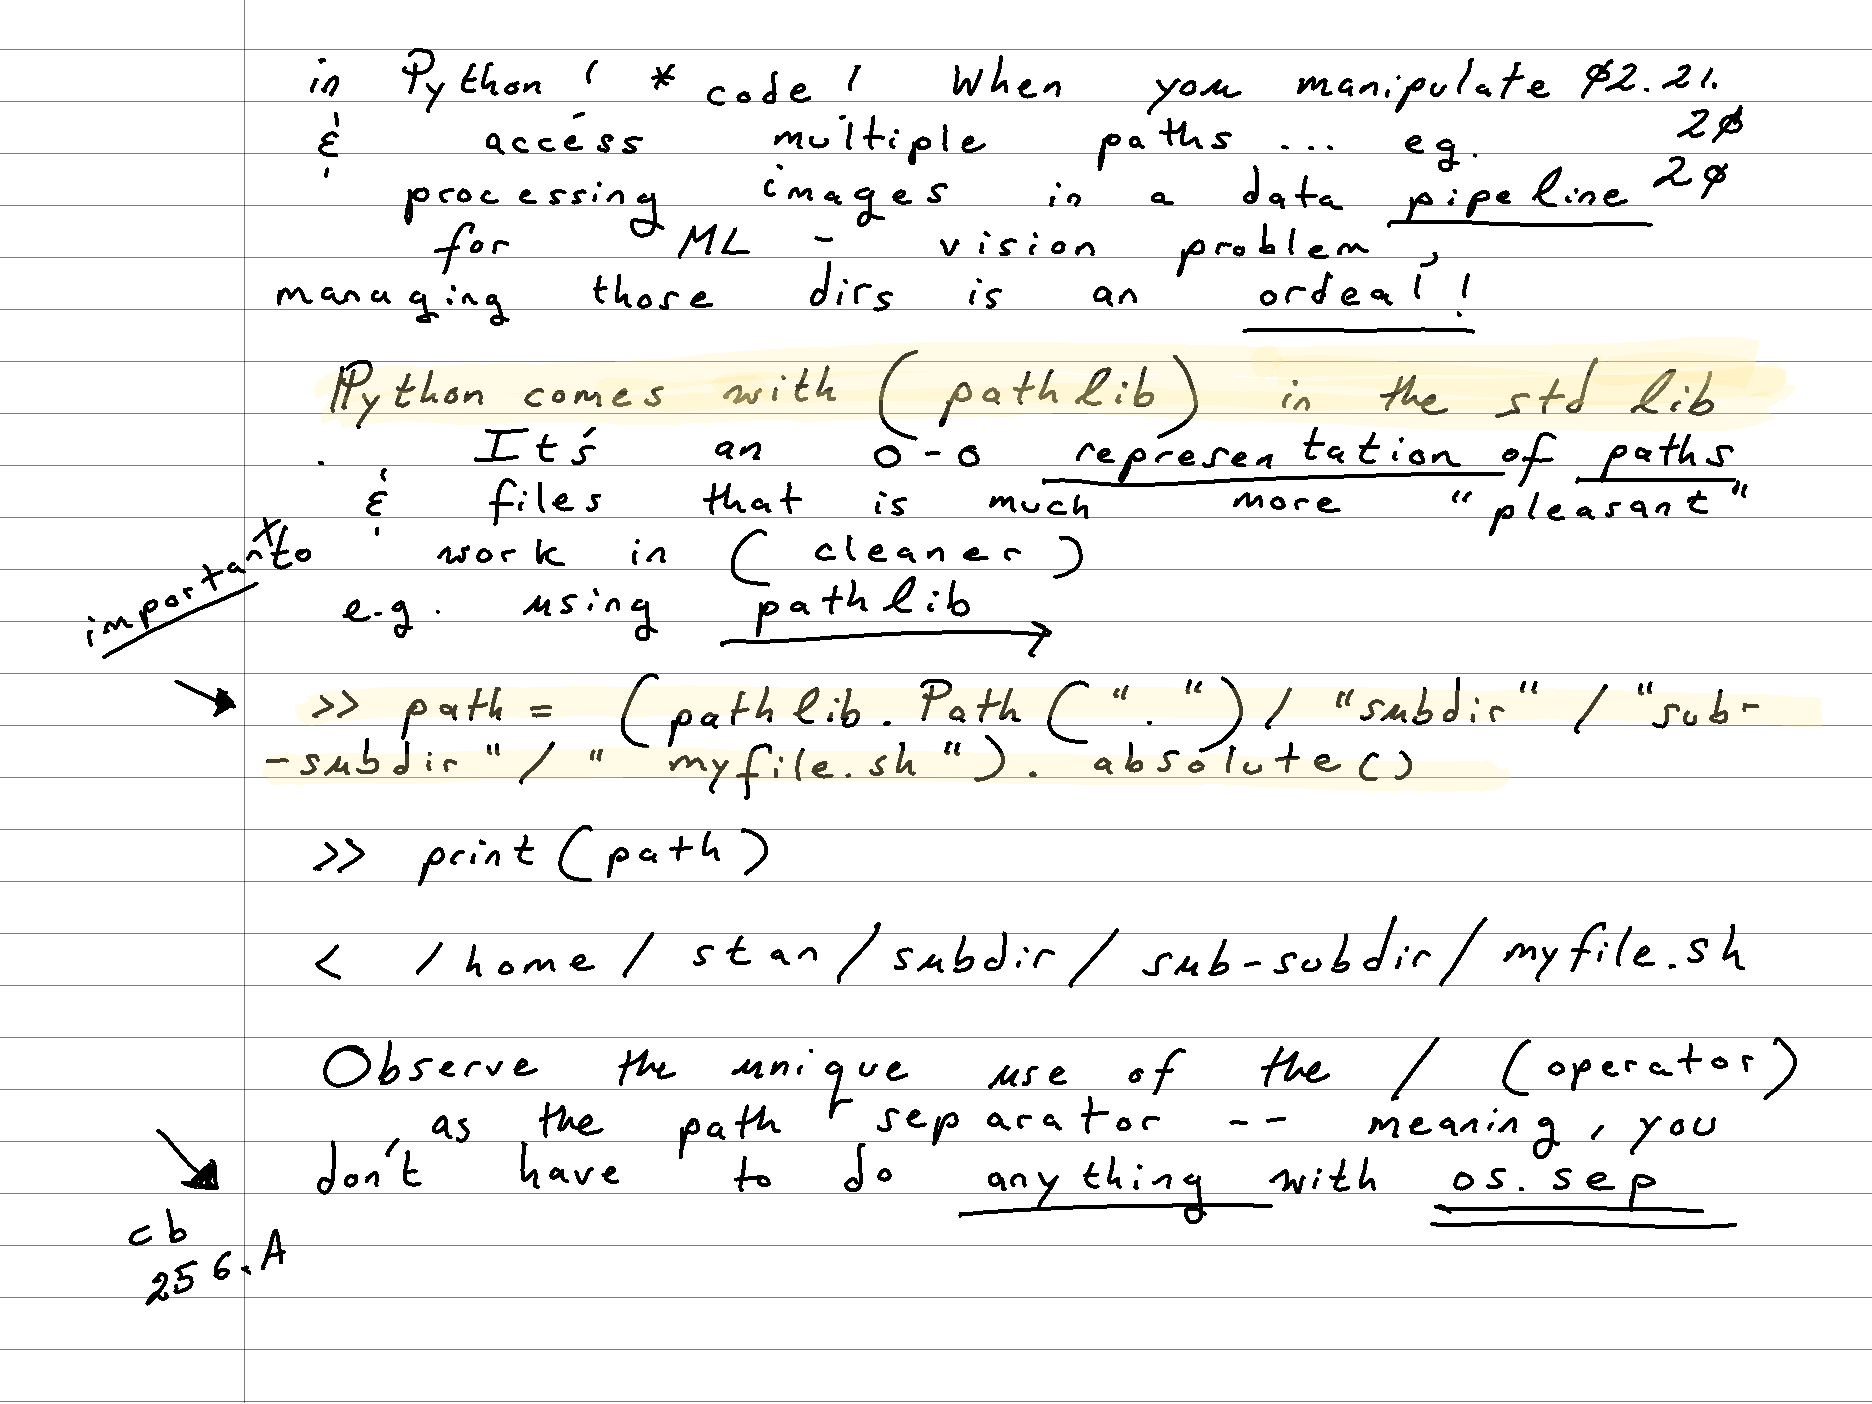 in Python ! * code ! When you manipulate 02.21.
& access multiple paths ... eg. 20
processing images in a data pipeline 20
for ML - vision problem,
managing those dirs is an ordeal!
Python comes with (pathlib) in the std lib
. It's an O-O representation of paths
& files that is much more "pleasant"
to work in (cleaner)
important
e.g. using pathlib
>> path = (pathlib.Path(".") / "subdir" / "sub-
-subdir" / "myfile.sh").absolute()
>> print(path)
< /home/stan/subdir/sub-subdir/myfile.sh
Observe the unique use of the / (operator)
as the path separator -- meaning, you
don't have to do anything with os.sep
cb
256.A